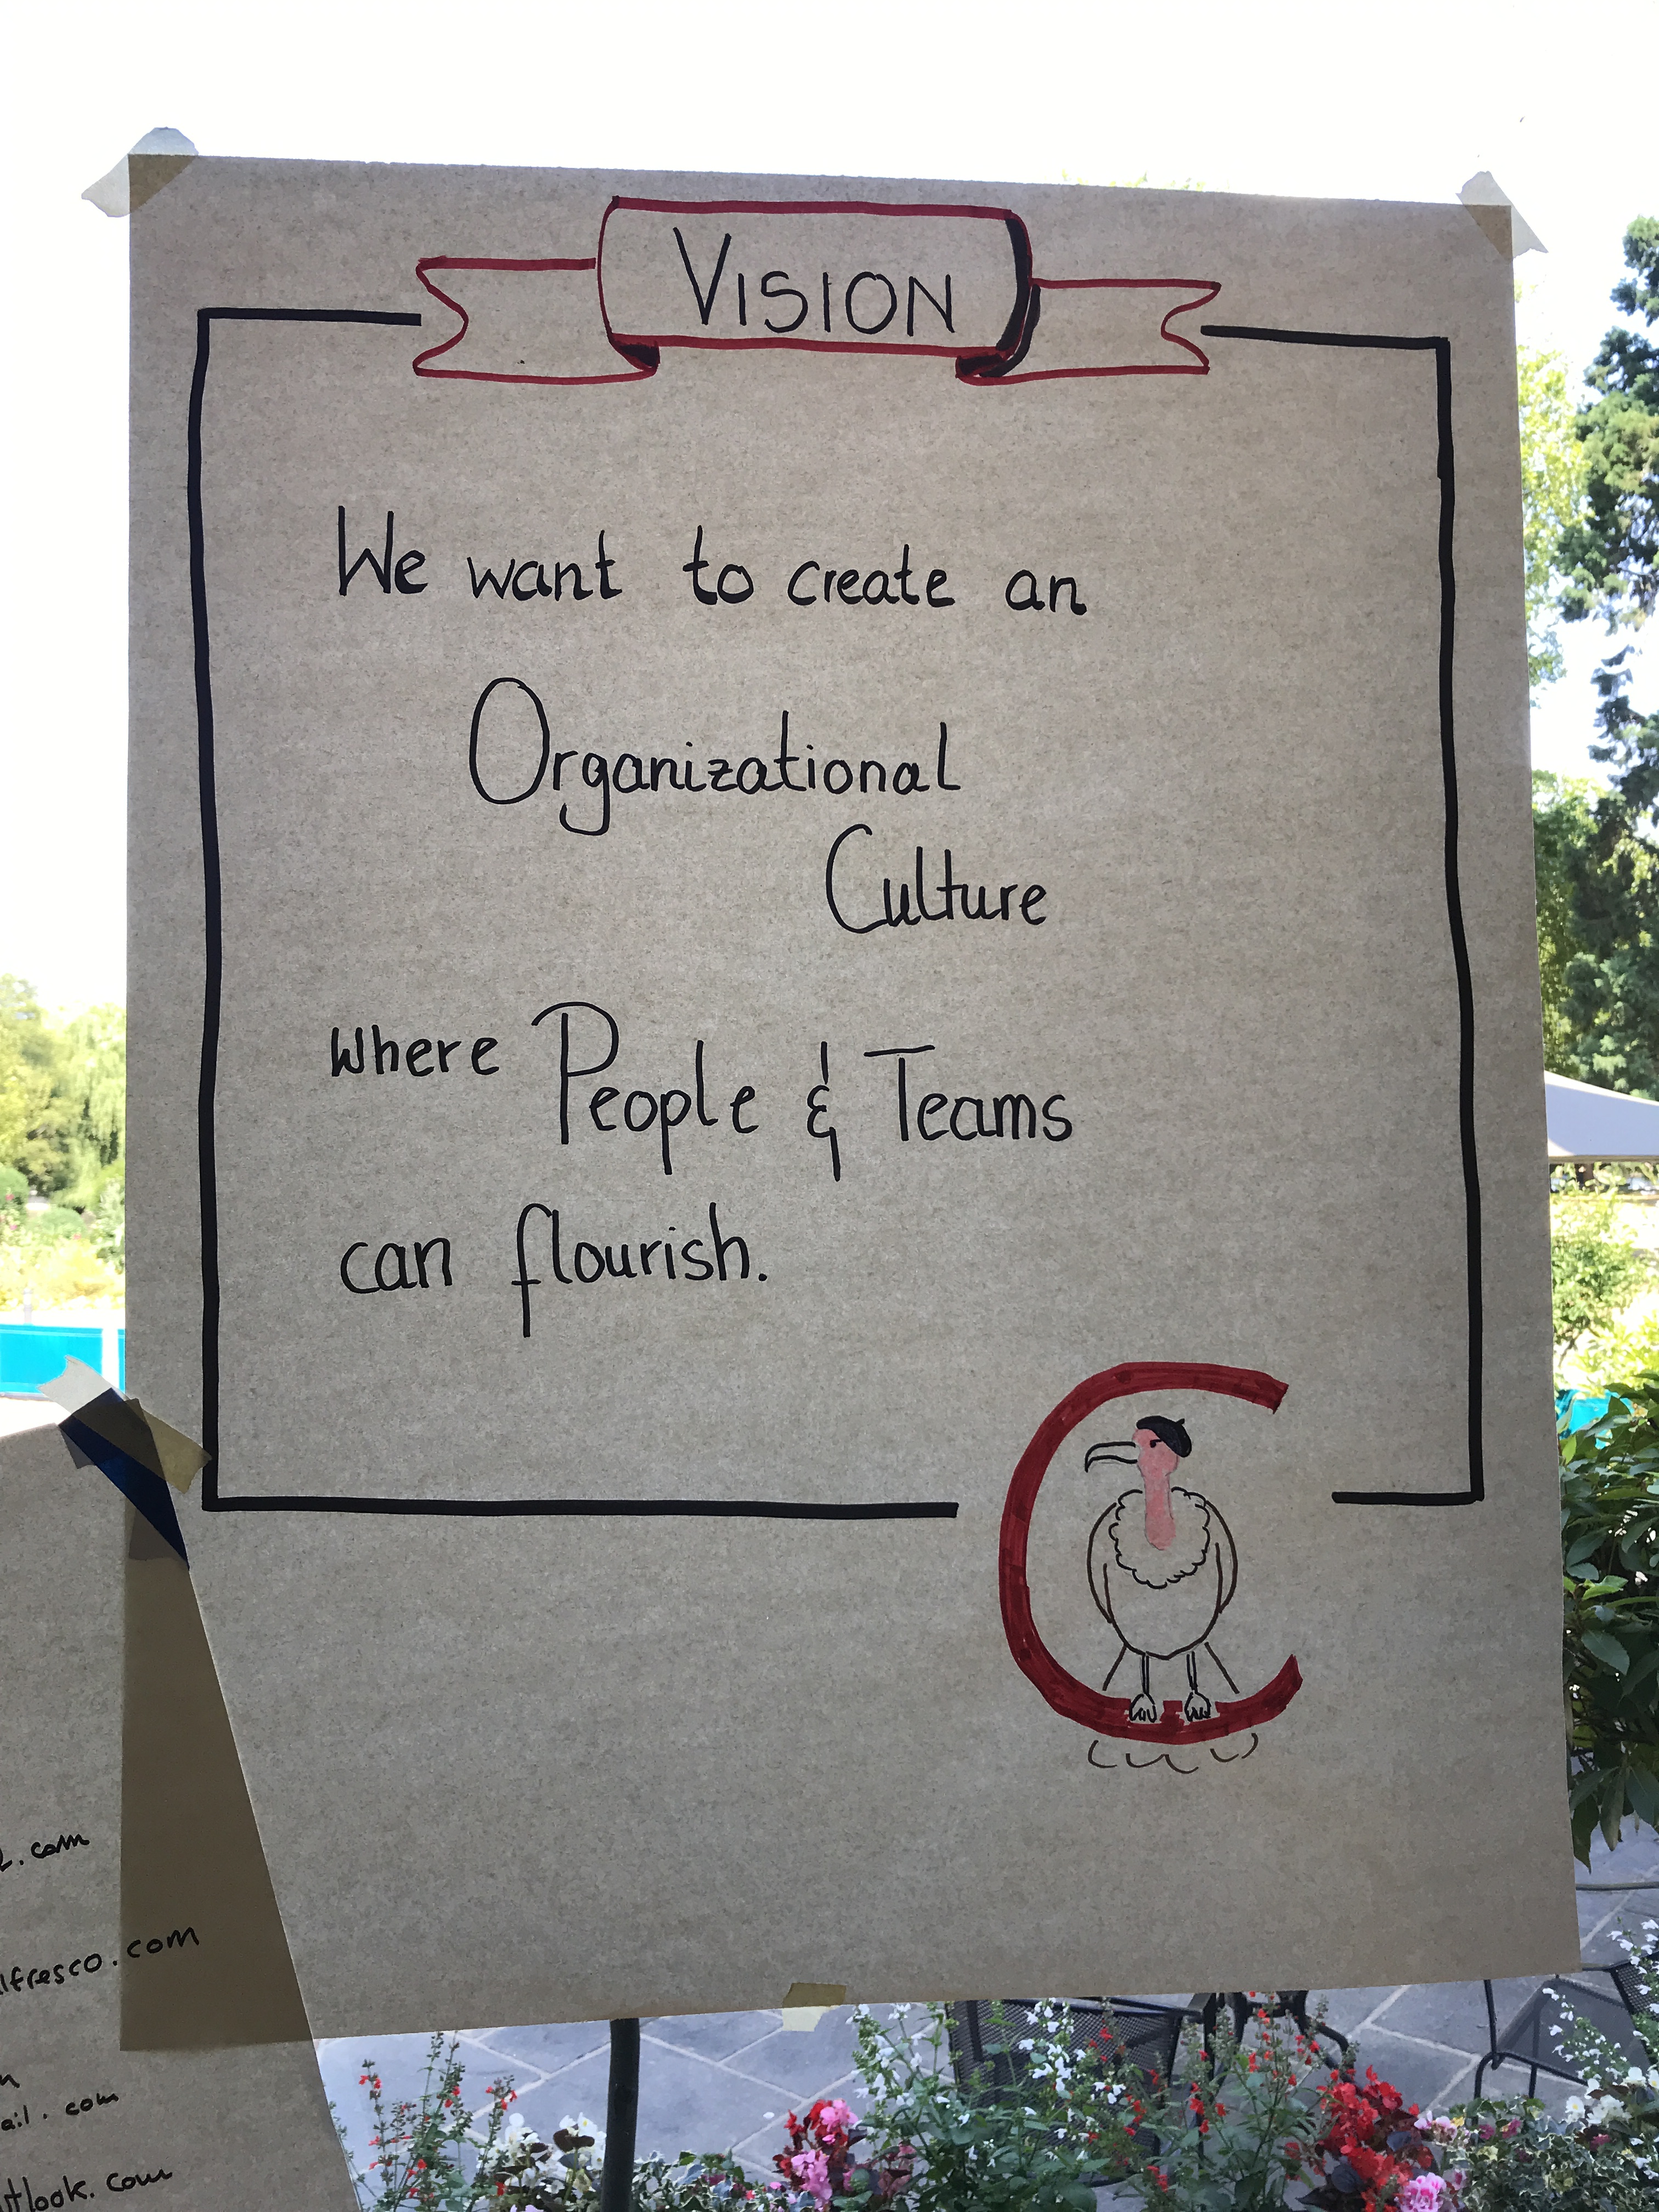 VISION
We want to create an
Organizational
Culture
where People & Teams
can flourish.
.com
lfresco.com
ail.com
tlook.com